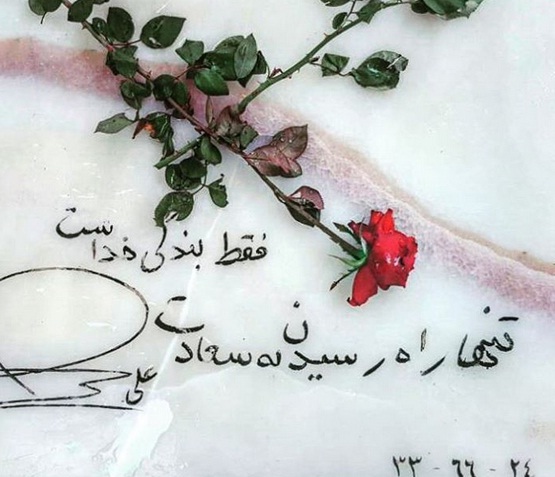 تنها راه رسیدن به سعادت
فقط بندگی خداست
علی
۲۴ - ۶۶ - ۳۳